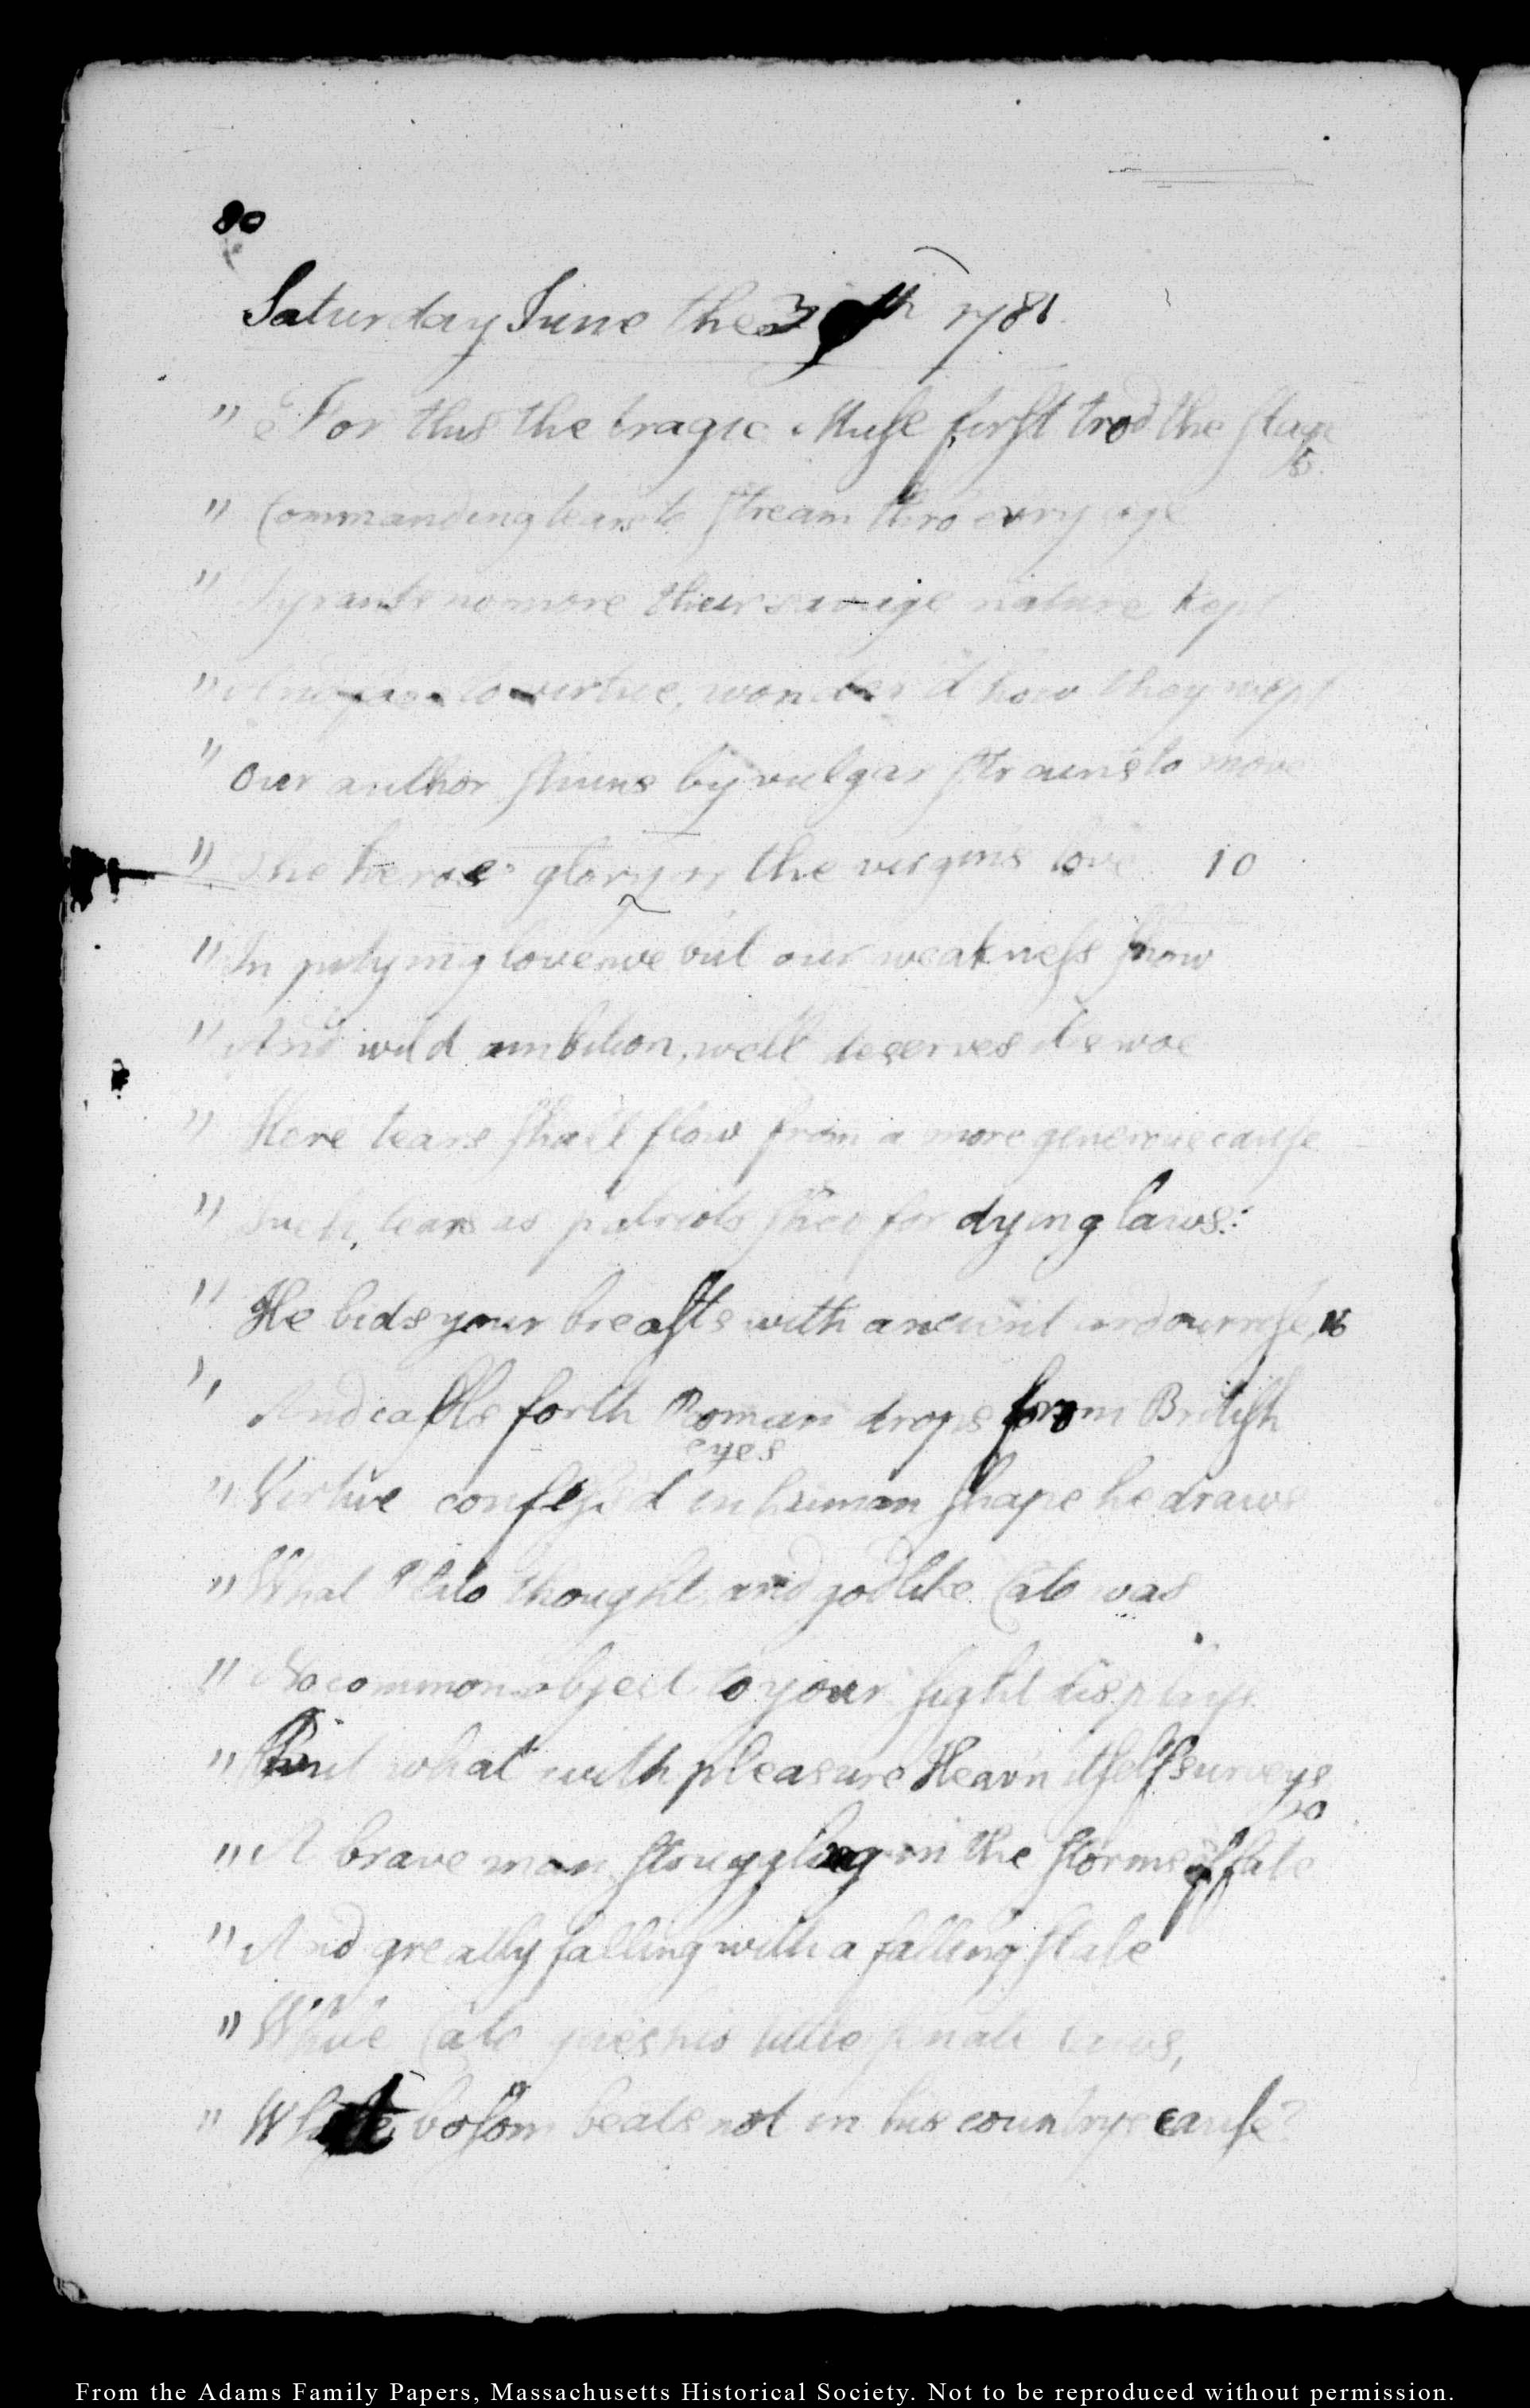 80
Saturday June the 30th 1781.
" For this the tragic Muse first trod the stage
5.
" Commanding tears to stream thro' every age
" Tyrants no more their savage nature kept
" And foes to virtue, wonder'd how they wept
" Our author shuns by vulgar strains to move
" The heroes glory or the virgins love 10
" In pitying love we but our weakness show
" And wild ambition, well deserves its woe
" Here tears shall flow from a more generous cause
" Such tears as patriots shed for dying laws:
" He bids your breasts with ancient ardour rise, 15
" And calls forth Roman drops from British
eyes
" Virtue confess'd in human shape he draws
" What Plato thought, and godlike Cato was
" No common object to your sight displays
" But what with pleasure Heavn itself surveys
20
" A brave man struggling in the storms of fate
" And greatly falling with a falling state
" While Cato gives his little senate laws,
" What bosom beats not in his countrys cause?
From the Adams Family Papers, Massachusetts Historical Society. Not to be reproduced without permission.